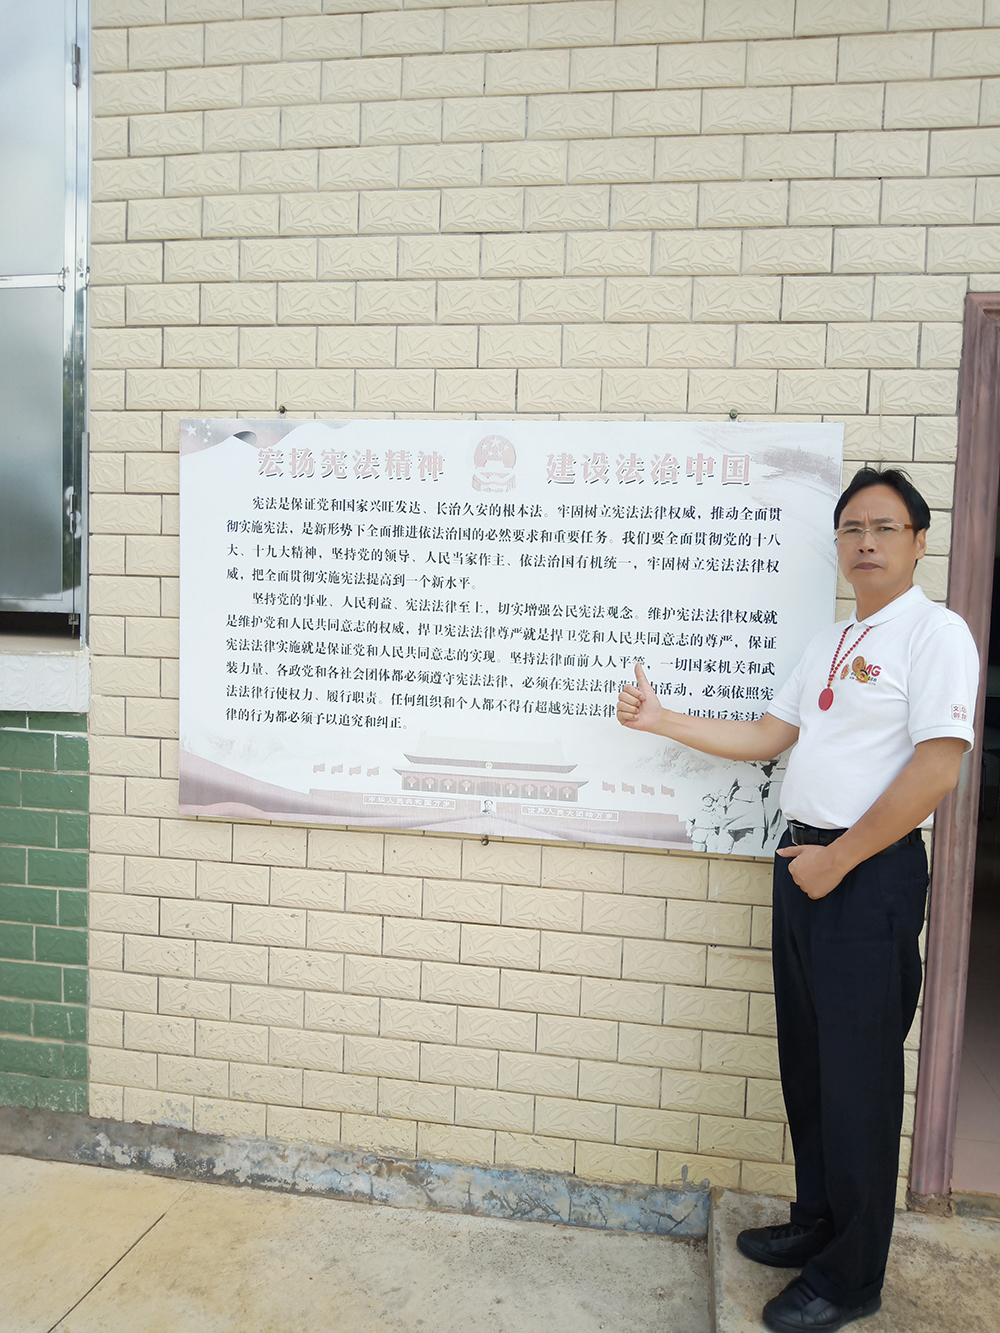 宏扬宪法精神 建设法治中国
宪法是保证党和国家兴旺发达、长治久安的根本法。牢固树立宪法法律权威，推动全面贯
彻实施宪法，是新形势下全面推进依法治国的必然要求和重要任务。我们要全面贯彻党的十八
大、十九大精神，坚持党的领导、人民当家作主、依法治国有机统一，牢固树立宪法法律权
威，把全面贯彻实施宪法提高到一个新水平。
坚持党的事业、人民利益、宪法法律至上，切实增强公民宪法观念。维护宪法法律权威就
是维护党和人民共同意志的权威，捍卫宪法法律尊严就是捍卫党和人民共同意志的尊严，保证
宪法法律实施就是保证党和人民共同意志的实现。坚持法律面前人人平等，一切国家机关和武
装力量、各政党和各社会团体都必须遵守宪法法律，必须在宪法法律范围内活动，必须依照宪
法法律行使权力、履行职责。任何组织和个人都不得有超越宪法法律 一切违反宪法
律的行为都必须予以追究和纠正。
中华人民共和国万岁 世界人民大团结万岁
MG